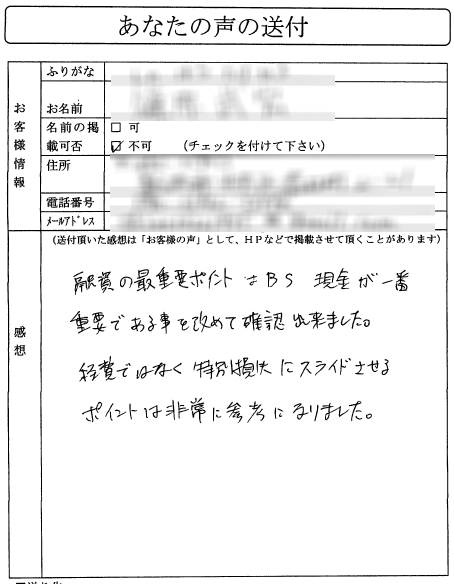 あなたの声の送付
お客様情報
ふりがな
お名前
名前の掲載可否
□ 可
☑ 不可 (チェックを付けて下さい)
住所
電話番号
メールアドレス
感想
(送付頂いた感想は「お客様の声」として、HPなどで掲載させて頂くことがあります)
融資の最重要ポイントはBS 現金が一番
重要である事を改めて確認出来ました。
経費ではなく特別損失にスライドさせる
ポイントは非常に参考になりました。